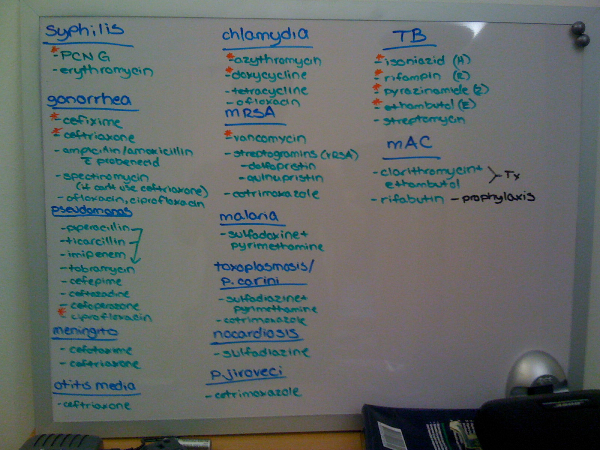 syphilis
* - PCN G
- erythromycin
gonorrhea
* - cefixime
* - ceftriaxone
- ampicillin/amoxicillin
c̄ probenecid
- spectinomycin
(if can't use ceftriaxone)
- ofloxacin, ciprofloxacin
pseudomonas
- piperacillin
- ticarcillin
- imipenem
- tobramycin
- cefepime
- ceftazadine
- cefoperazone
* ciprofloxacin
meningitis
- cefotaxime
- ceftriaxone
otitis media
- ceftriaxone
chlamydia
* - azythromycin
* - doxycycline
- tetracycline
- ofloxacin
MRSA
* - vancomycin
- streptogramins (VRSA)
- dalfopristin
- quinupristin
- cotrimoxazole
malaria
- sulfadoxine +
pyrimethamine
toxoplasmosis/
P. carini
- sulfadiazine +
pyrimethamine
- cotrimoxazole
nocardiosis
- sulfadiazine
P. jiroveci
- cotrimoxazole
TB
* - isoniazid (H)
* - rifampin (R)
* - pyrazinamide (Z)
* - ethambutol (E)
- streptomycin
MAC
- clarithromycin +
ethambutol > Tx
- rifabutin - prophylaxis